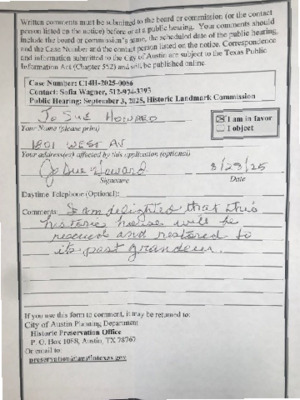 Written comments must be submitted to the board or commission (or the contact
person listed on the notice) before or at a public hearing. Your comments should
include the board or commission's name, the scheduled date of the public hearing,
and the Case Number and the contact person listed on the notice. Correspondence
and information submitted to the City of Austin are subject to the Texas Public
Information Act (Chapter 552) and will be published online.
Case Number: C14H-2025-0086
Contact: Sofia Wagner, 512-974-3393
Public Hearing: September 3, 2025, Historic Landmark Commission
Jo Sue Howard
Your Name (please print)
I am in favor
I object
1801 WEST AV
Your address(es) affected by this application (optional)
Jo Sue Howard 8/29/25
Signature Date
Daytime Telephone (Optional):
Comments: I am delighted that this
historic house will be
rescued and restored to
its past grandeur.
If you use this form to comment, it may be returned to:
City of Austin Planning Department
Historic Preservation Office
P. O. Box 1088, Austin, TX 78767
Or email to:
preservation@austintexas.gov